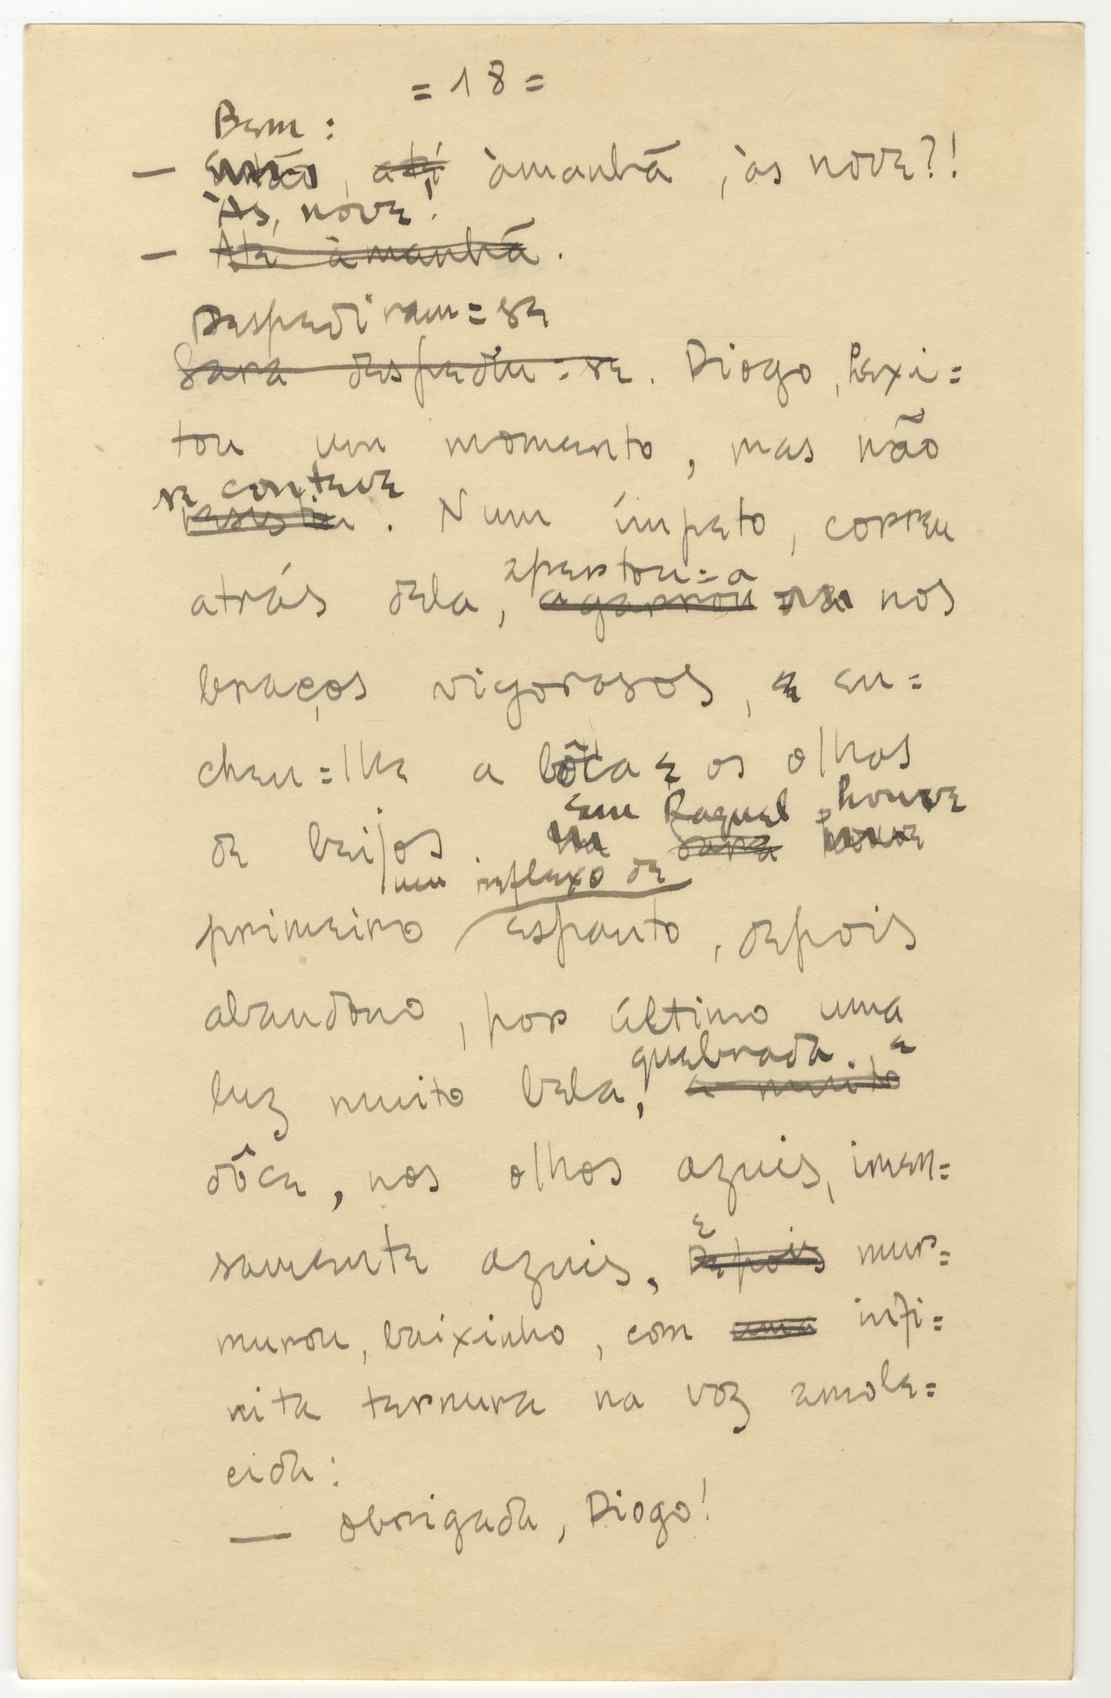 =18=
Bem:
— Então, até àmanhã, às nove?!
Às nove!
— Até àmanhã.
Despediram=se
Sara despediu=se. Diogo, hexi=
tou um momento, mas não
se conteve
resistiu. Num ímpeto, correu
apertou=a
atrás dela, agarrou=a nos
braços vigorosos, e en=
cheu=lhe a bôca e os olhos
de beijos
em Raquel, houve
na Sara houve
um reflexo de
primeiro espanto, depois
abandono, por último uma
quebrada, e
luz muito bela, e muito
dôce, nos olhos azuis, imen=
samente azuis, Depois mur=
e
murou, baixinho, com uma infi=
nita ternura na voz amole=
cida:
— Obrigada, Diogo!